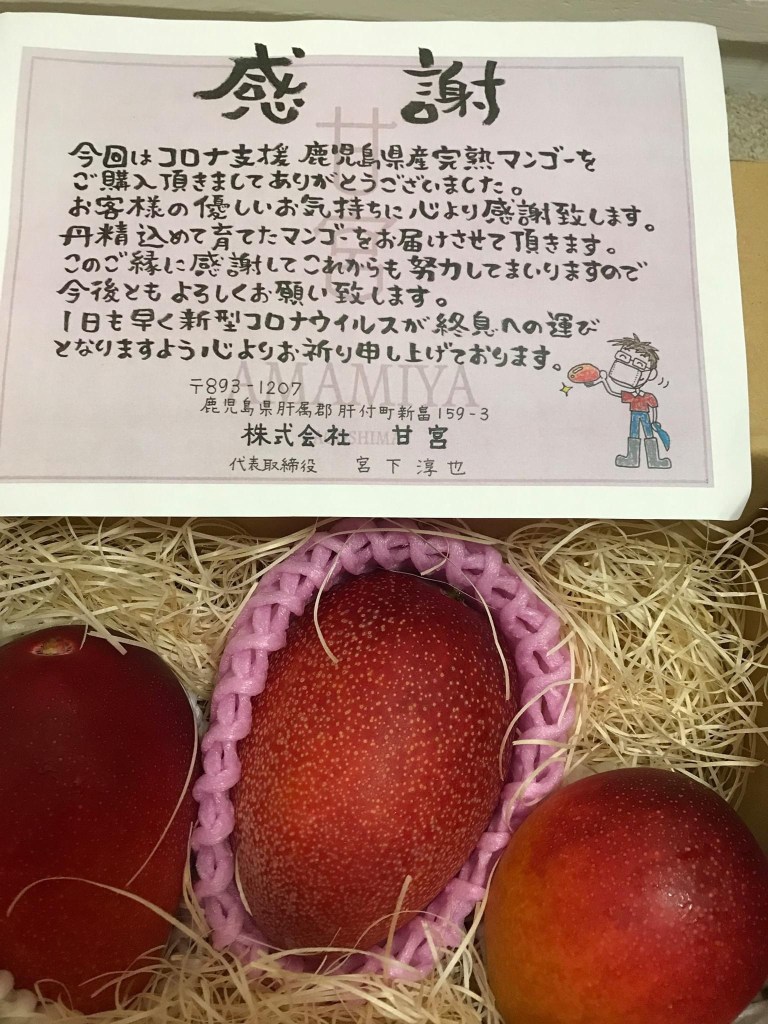 感謝
今回はコロナ支援 鹿児島県産完熟マンゴーを
ご購入頂きましてありがとうございました。
お客様の優しいお気持ちに心より感謝致します。
丹精込めて育てたマンゴーをお届けさせて頂きます。
このご縁に感謝してこれからも努力してまいりますので
今後ともよろしくお願い致します。
1日も早く新型コロナウイルスが終息への運び
となりますよう心よりお祈り申し上げております。
AMAMIYA
〒893-1207
鹿児島県肝属郡肝付町新富159-3
株式会社 甘宮
代表取締役 宮下淳也